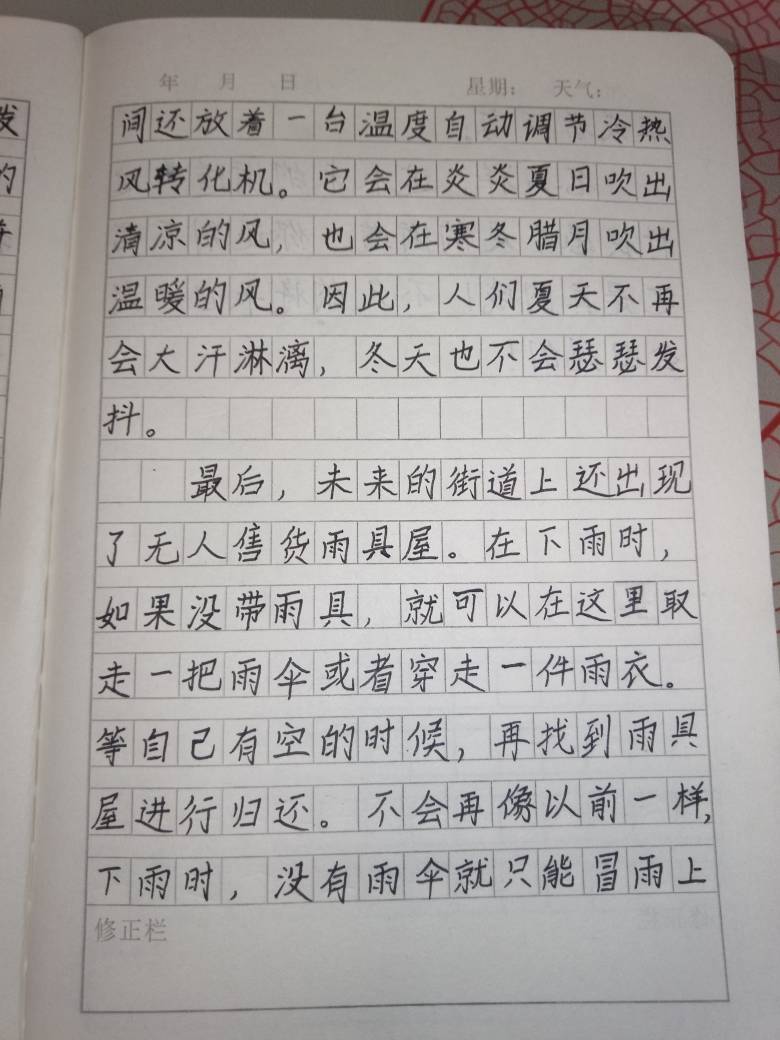 年 月 日 星期： 天气：
间还放着一台温度自动调节冷热
风转化机。它会在炎炎夏日吹出
清凉的风，也会在寒冬腊月吹出
温暖的风。因此，人们夏天不再
会大汗淋漓，冬天也不会瑟瑟发
抖。
最后，未来的街道上还出现
了无人售货雨具屋。在下雨时，
如果没带雨具，就可以在这里取
走一把雨伞或者穿走一件雨衣。
等自己有空的时候，再找到雨具
屋进行归还。不会再像以前一样，
下雨时，没有雨伞就只能冒雨上
修正栏